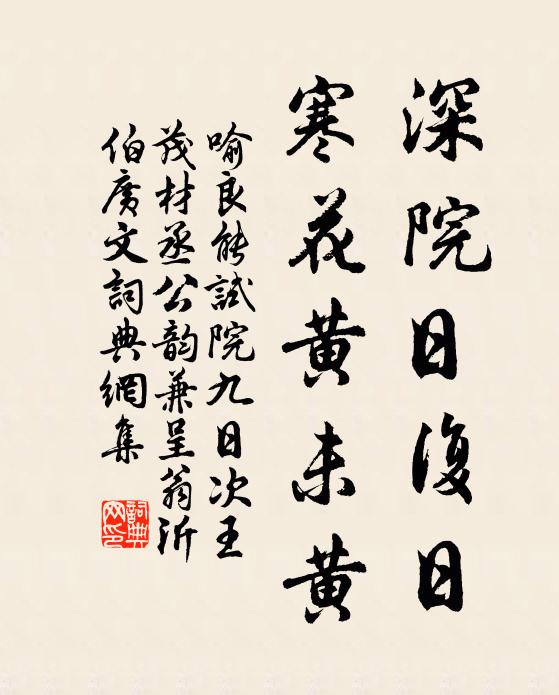 深院日復日
寒花黄未黄
喻良能試院九日次王
茂材丞公韵兼呈翁沂
伯廣文詞典網集
詞典
网印